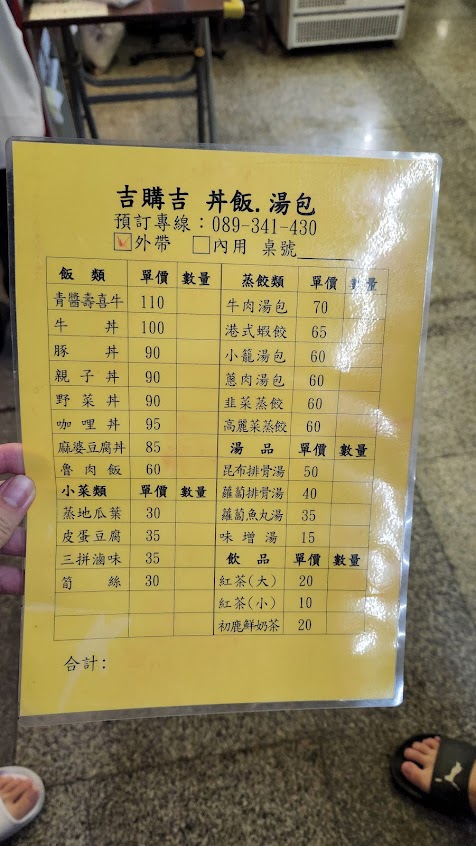 吉購吉 丼飯.湯包
預訂專線：089-341-430
☑外帶 □內用 桌號______
飯類 單價 數量
青醬壽喜牛 110
牛丼 100
豚丼 90
親子丼 90
野菜丼 90
咖哩丼 95
麻婆豆腐丼 85
魯肉飯 60
小菜類 單價 數量
蒸地瓜葉 30
皮蛋豆腐 35
三拼滷味 35
筍絲 30
蒸餃類 單價 數量
牛肉湯包 70
港式蝦餃 65
小籠湯包 60
蔥肉湯包 60
韭菜蒸餃 60
高麗菜蒸餃 60
湯品 單價 數量
昆布排骨湯 50
蘿蔔排骨湯 40
蘿蔔魚丸湯 35
味增湯 15
飲品 單價 數量
紅茶(大) 20
紅茶(小) 10
初鹿鮮奶茶 20
合計：